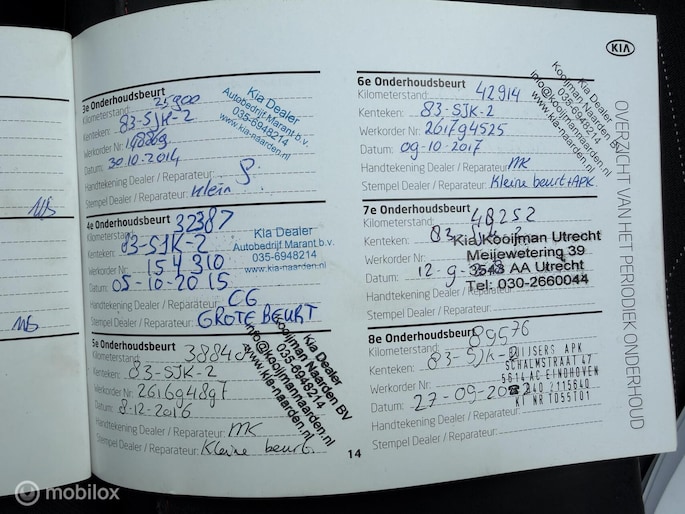 KIA
OVERZICHT VAN HET PERIODIEK ONDERHOUD
3e Onderhoudsbeurt
Kilometerstand: 25900
Kenteken: 83-SJK-2
Werkorder Nr
Datum: 30.10.2014
Handtekening Dealer / Reparateur:
Stempel Dealer / Reparateur: Klein
Kia Dealer
Autobedrijf Marant b.v.
035-6948214
www.kia-naarden.nl
4e Onderhoudsbeurt
Kilometerstand: 32387
Kenteken: 83-SJK-2
Werkorder Nr: 154310
Datum: 05-10-2015
Handtekening Dealer / Reparateur: CG
Stempel Dealer / Reparateur: GROTE BEURT
Kia Dealer
Autobedrijf Marant b.v.
035-6948214
www.kia-naarden.nl
5e Onderhoudsbeurt
Kilometerstand: 38840
Kenteken: 83-SJK-2
Werkorder Nr
Datum: 8-12-2016
Handtekening Dealer / Reparateur: MK
Stempel Dealer / Reparateur: Kleine beurt.
Kia Dealer
Kooijman Naarden BV
035-6948214
info@kooijmannaarden.nl
www.kia-naarden.nl
6e Onderhoudsbeurt
Kilometerstand: 42914
Kenteken: 83-SJK-2
Werkorder Nr: 2617g4525
Datum: 09-10-2017
Handtekening Dealer / Reparateur: MK
Stempel Dealer / Reparateur: Kleine beurt + APK
Kia Dealer
Kooijman Naarden BV
035-6948214
info@kooijmannaarden.nl
www.kia-naarden.nl
7e Onderhoudsbeurt
Kilometerstand: 48252
Kenteken: 83-SJK-2
Werkorder Nr
Datum: 12-9-
Handtekening Dealer / Reparateur:
Stempel Dealer / Reparateur:
Kia Kooijman Utrecht
Meijewetering 39
3543 AA Utrecht
Tel: 030-2660044
8e Onderhoudsbeurt
Kilometerstand: 89576
Kenteken: 83-SJK-2
Werkorder Nr
Datum: 27-09-
Handtekening Dealer / Reparateur:
Stempel Dealer / Reparateur:
APK
SCHALMSTRAAT 47
5614 AC EINDHOVEN
040 2115640
KI NR 1055T01
14
mobilox